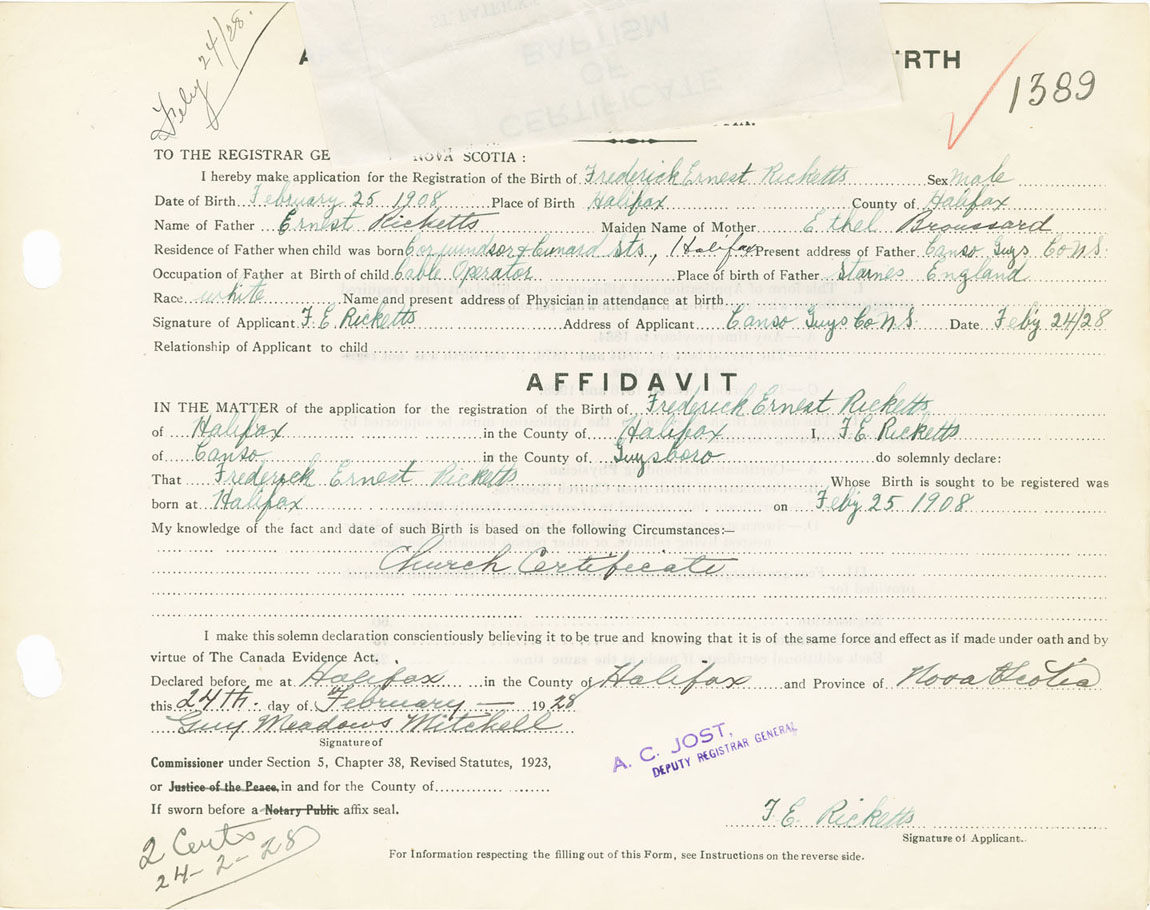 Feby 24/28.
RTH
1389
TO THE REGISTRAR GE NOVA SCOTIA :
I hereby make application for the Registration of the Birth of Frederick Ernest Ricketts Sex Male
Date of Birth February 25 1908 Place of Birth Halifax County of Halifax
Name of Father Ernest Ricketts Maiden Name of Mother Ethel Broussard
Residence of Father when child was born Cor Windsor & Cunard Sts., Halifax Present address of Father Canso Guys Co N.S.
Occupation of Father at Birth of child Cable Operator Place of birth of Father Starnes England
Race white Name and present address of Physician in attendance at birth
Signature of Applicant F. E. Ricketts Address of Applicant Canso Guys Co N.S. Date Feb'y 24/28
Relationship of Applicant to child
AFFIDAVIT
IN THE MATTER of the application for the registration of the Birth of Frederick Ernest Ricketts
of Halifax in the County of Halifax I, F. E. Ricketts
of Canso in the County of Guysboro do solemnly declare:
That Frederick Ernest Ricketts Whose Birth is sought to be registered was
born at Halifax on Feb'y 25 1908
My knowledge of the fact and date of such Birth is based on the following Circumstances:—
Church Certificate
I make this solemn declaration conscientiously believing it to be true and knowing that it is of the same force and effect as if made under oath and by
virtue of The Canada Evidence Act.
Declared before me at Halifax in the County of Halifax and Province of Nova Scotia
this 24th. day of February — 1928
Guy Meadows Mitchell
Signature of
A. C. JOST,
DEPUTY REGISTRAR GENERAL
Commissioner under Section 5, Chapter 38, Revised Statutes, 1923,
or Justice of the Peace, in and for the County of
If sworn before a Notary Public affix seal.
F. E. Ricketts
Signature of Applicant.
2 Certs
24-2-28
For Information respecting the filling out of this Form, see Instructions on the reverse side.